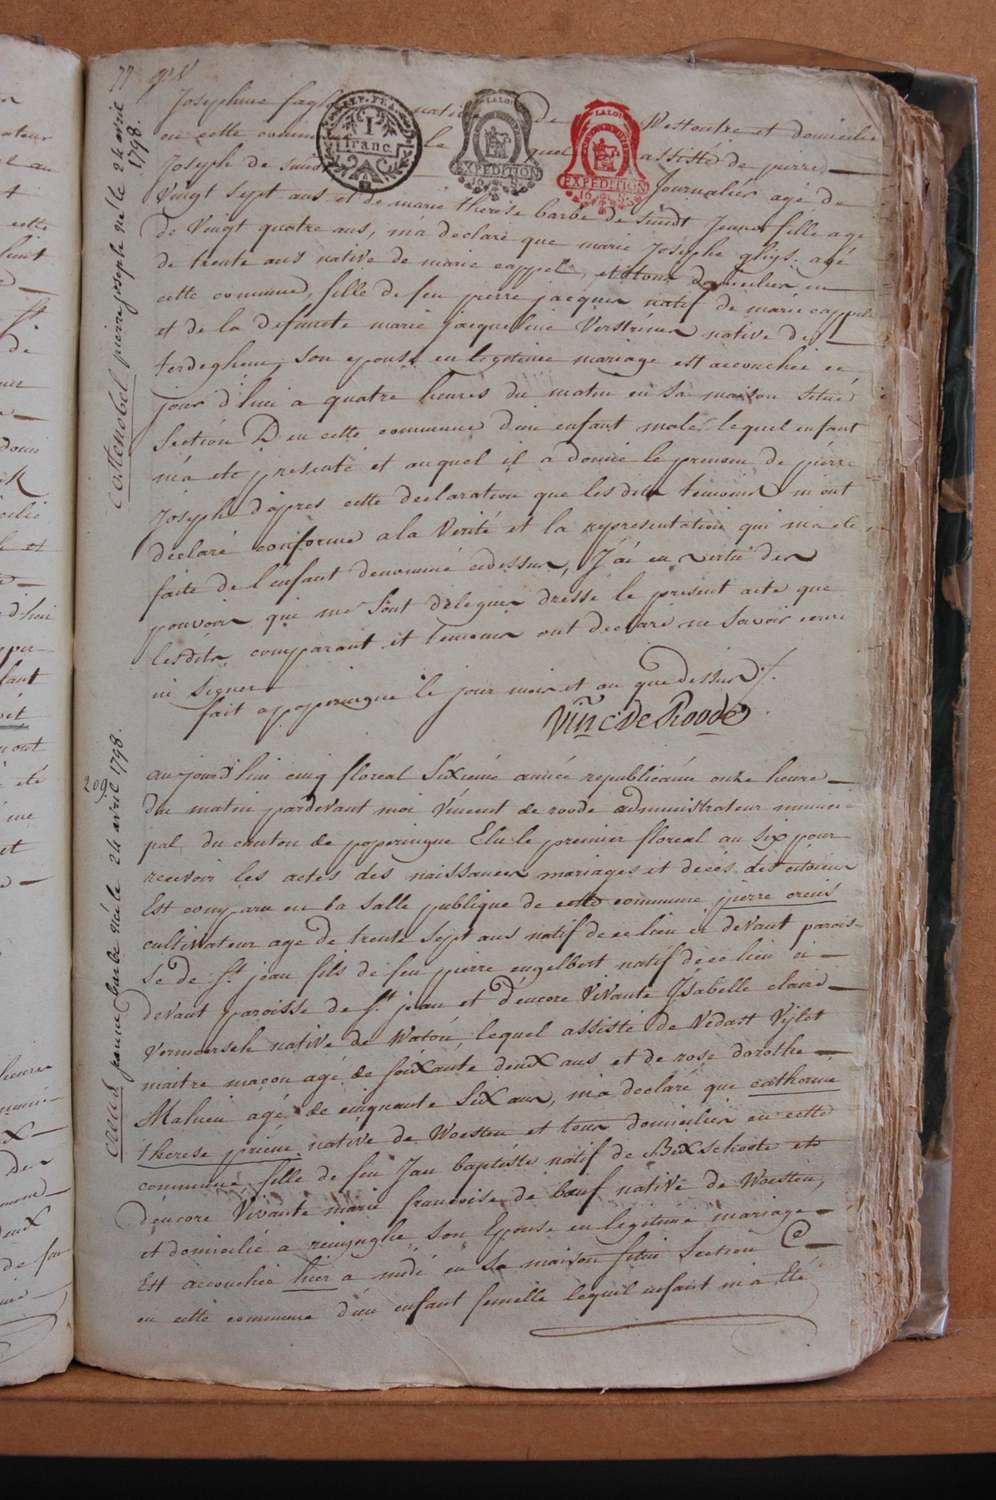 Josephine natif de Westoutre et domicilié
en cette commune lequel assisté de pierre
Joseph de Journalier agé de
Vingt sept ans et de marie therese barbe de Smidt Jeune fille age
de Vingt quatre ans, m'a declaré que marie Josephe ghijs agé
de trente ans native de marie cappel, et domicilier en
cette commune, fille de feu pierre jacques natif de marie cappel
et de la defuncte marie jacqueline Verstrenen native de
terdeghem, son epouse en legetime mariage est accouchée ce
jour d'hui a quatre heures du matin en sa maison situé
Section D en cette commune d'un enfant male lequel enfant
m'a ete presenté et auquel il a donné le prenom de pierre
Joseph d'apres cette declaration que lesdits temoins m'ont
declaré conforme a la Verité et la representation qui m'a ete
faite de l'enfant denommé cidessus, J'ai en vertu des
pouvoirs qui me sont deleguer dressé le present acte que
lesdits comparant et temoins ont declaré ne savoir ecrire
ni signer
fait a poperingue le jour mois et an que dessus
Vinc. De Roode
castenobel pierre joseph né le 24 avril
1798.
209
creus jeanne barbe née le 24 avril 1798.
aujourd'hui cinq floreal sixieme année republicaine onze heure
du matin pardevant moi Vincent de roode administrateur munici
pal du canton de poperingue Elu le premier floreal an six pour
recevoir les actes des naissances mariages et décés des citoiens
Est comparu en la salle publique de cette commune pierre creus
cultivateur age de trente sept ans natif de ce lieu ci devant parois-
se de st. jean fils de feu pierre engelbert natif de ce lieu ci-
devant paroisse de st. jean et d'encore Vivante Isabelle claire
Vermeersch native de Watou, lequel assisté de Vedast Vijlet
maitre maçon agé de soixante deux ans et de rose dorothe
Mahieu agé de cinquante six ans, m'a declaré que catherine
therese prieur native de Woesten et tous domicilier en cette
commune, fille de feu Jan baptiste natif de Bixschoote et
d'encore Vivante marie francoise de bœuf native de Woesten,
et domicilié a reninghe, son Epouse en legitime mariage
Est accouchée hier a midi en sa maison situé Section C
en cette commune d'un enfant femelle lequel enfant m'a Eté